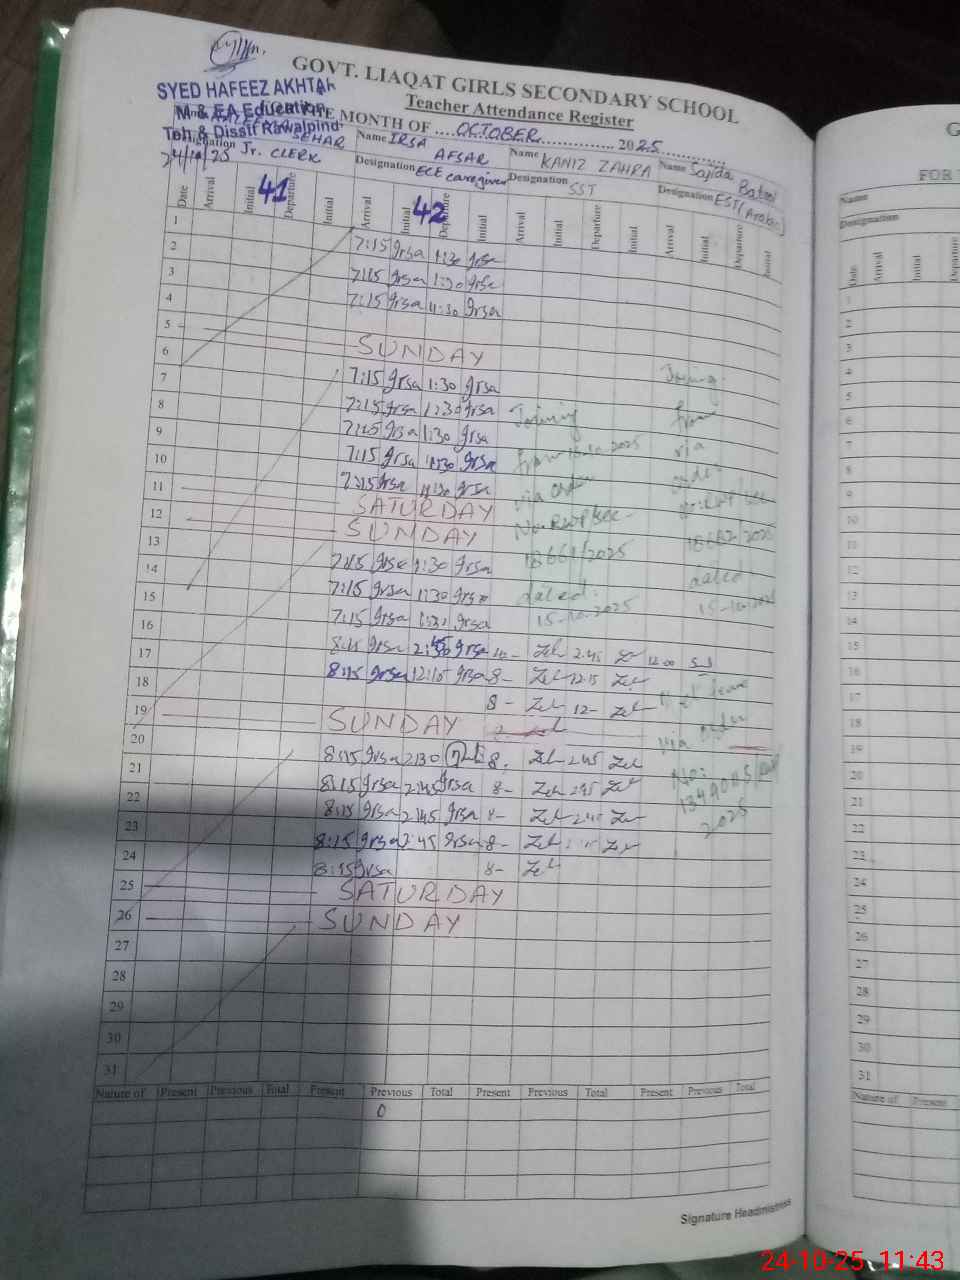 GOVT. LIAQAT GIRLS SECONDARY SCHOOL
Teacher Attendance Register
SYED HAFEEZ AKHTAR
M & EA Education
Teh & Disstt Rawalpindi
24/10/25
THE MONTH OF ....OCTOBER................ 2025
Designation Jr. CLERK
Name IRSA AFSAR
Designation ECE caregiver
Name KANIZ ZAHRA
Designation SST
Name Sajida Batool
Designation EST(Arabic)
41
42
Date Arrival Initial Departure Initial Arrival Initial Departure Initial Arrival Initial Departure Initial Arrival Initial Departure Initial
1
2 7:15 Irsa 1:30 Irsa
3 7:15 Irsa 1:30 Irsa
4 7:15 Irsa 1:30 Irsa
5 SUNDAY
6 7:15 Irsa 1:30 Irsa
7 7:15 Irsa 1:30 Irsa
8 7:15 Irsa 1:30 Irsa
9 7:15 Irsa 1:30 Irsa
10 7:15 Irsa 1:30 Irsa
11 SATURDAY
12 SUNDAY
13 7:15 Irsa 1:30 Irsa
14 7:15 Irsa 1:30 Irsa
15 7:15 Irsa 1:30 Irsa
16 8:15 Irsa Irsa 2:45 12:00
17 8:15 Irsa 12:15 Irsa 8- 12:15
18 8- 12-
19 SUNDAY
20 8:15 Irsa 2:30 8. 2:45
21 8:15 Irsa 2:45 Irsa 8- 2:45
22 8:15 Irsa 2:45 Irsa 8-
23 8:15 Irsa 2:45 Irsa 8-
24 8:15 Irsa 8-
25 SATURDAY
26 SUNDAY
27
28
29
30
31
Joining
from 2025
via order
18661/2025
dated:
15-10-2025
Joining
from
via
order
18662/2025
dated
15-10-2025
via order
No:
2025
Nature of Present Previous Total Present Previous Total Present Previous Total Present Previous Total
0
Signature Headmistress
G
FOR
Name
Designation
Date Arrival Initial Departure
1
2
3
4
5
6
7
8
9
10
11
12
13
14
15
16
17
18
19
20
21
22
23
24
25
26
27
28
29
30
31
Nature of Present
24-10-25 11:43